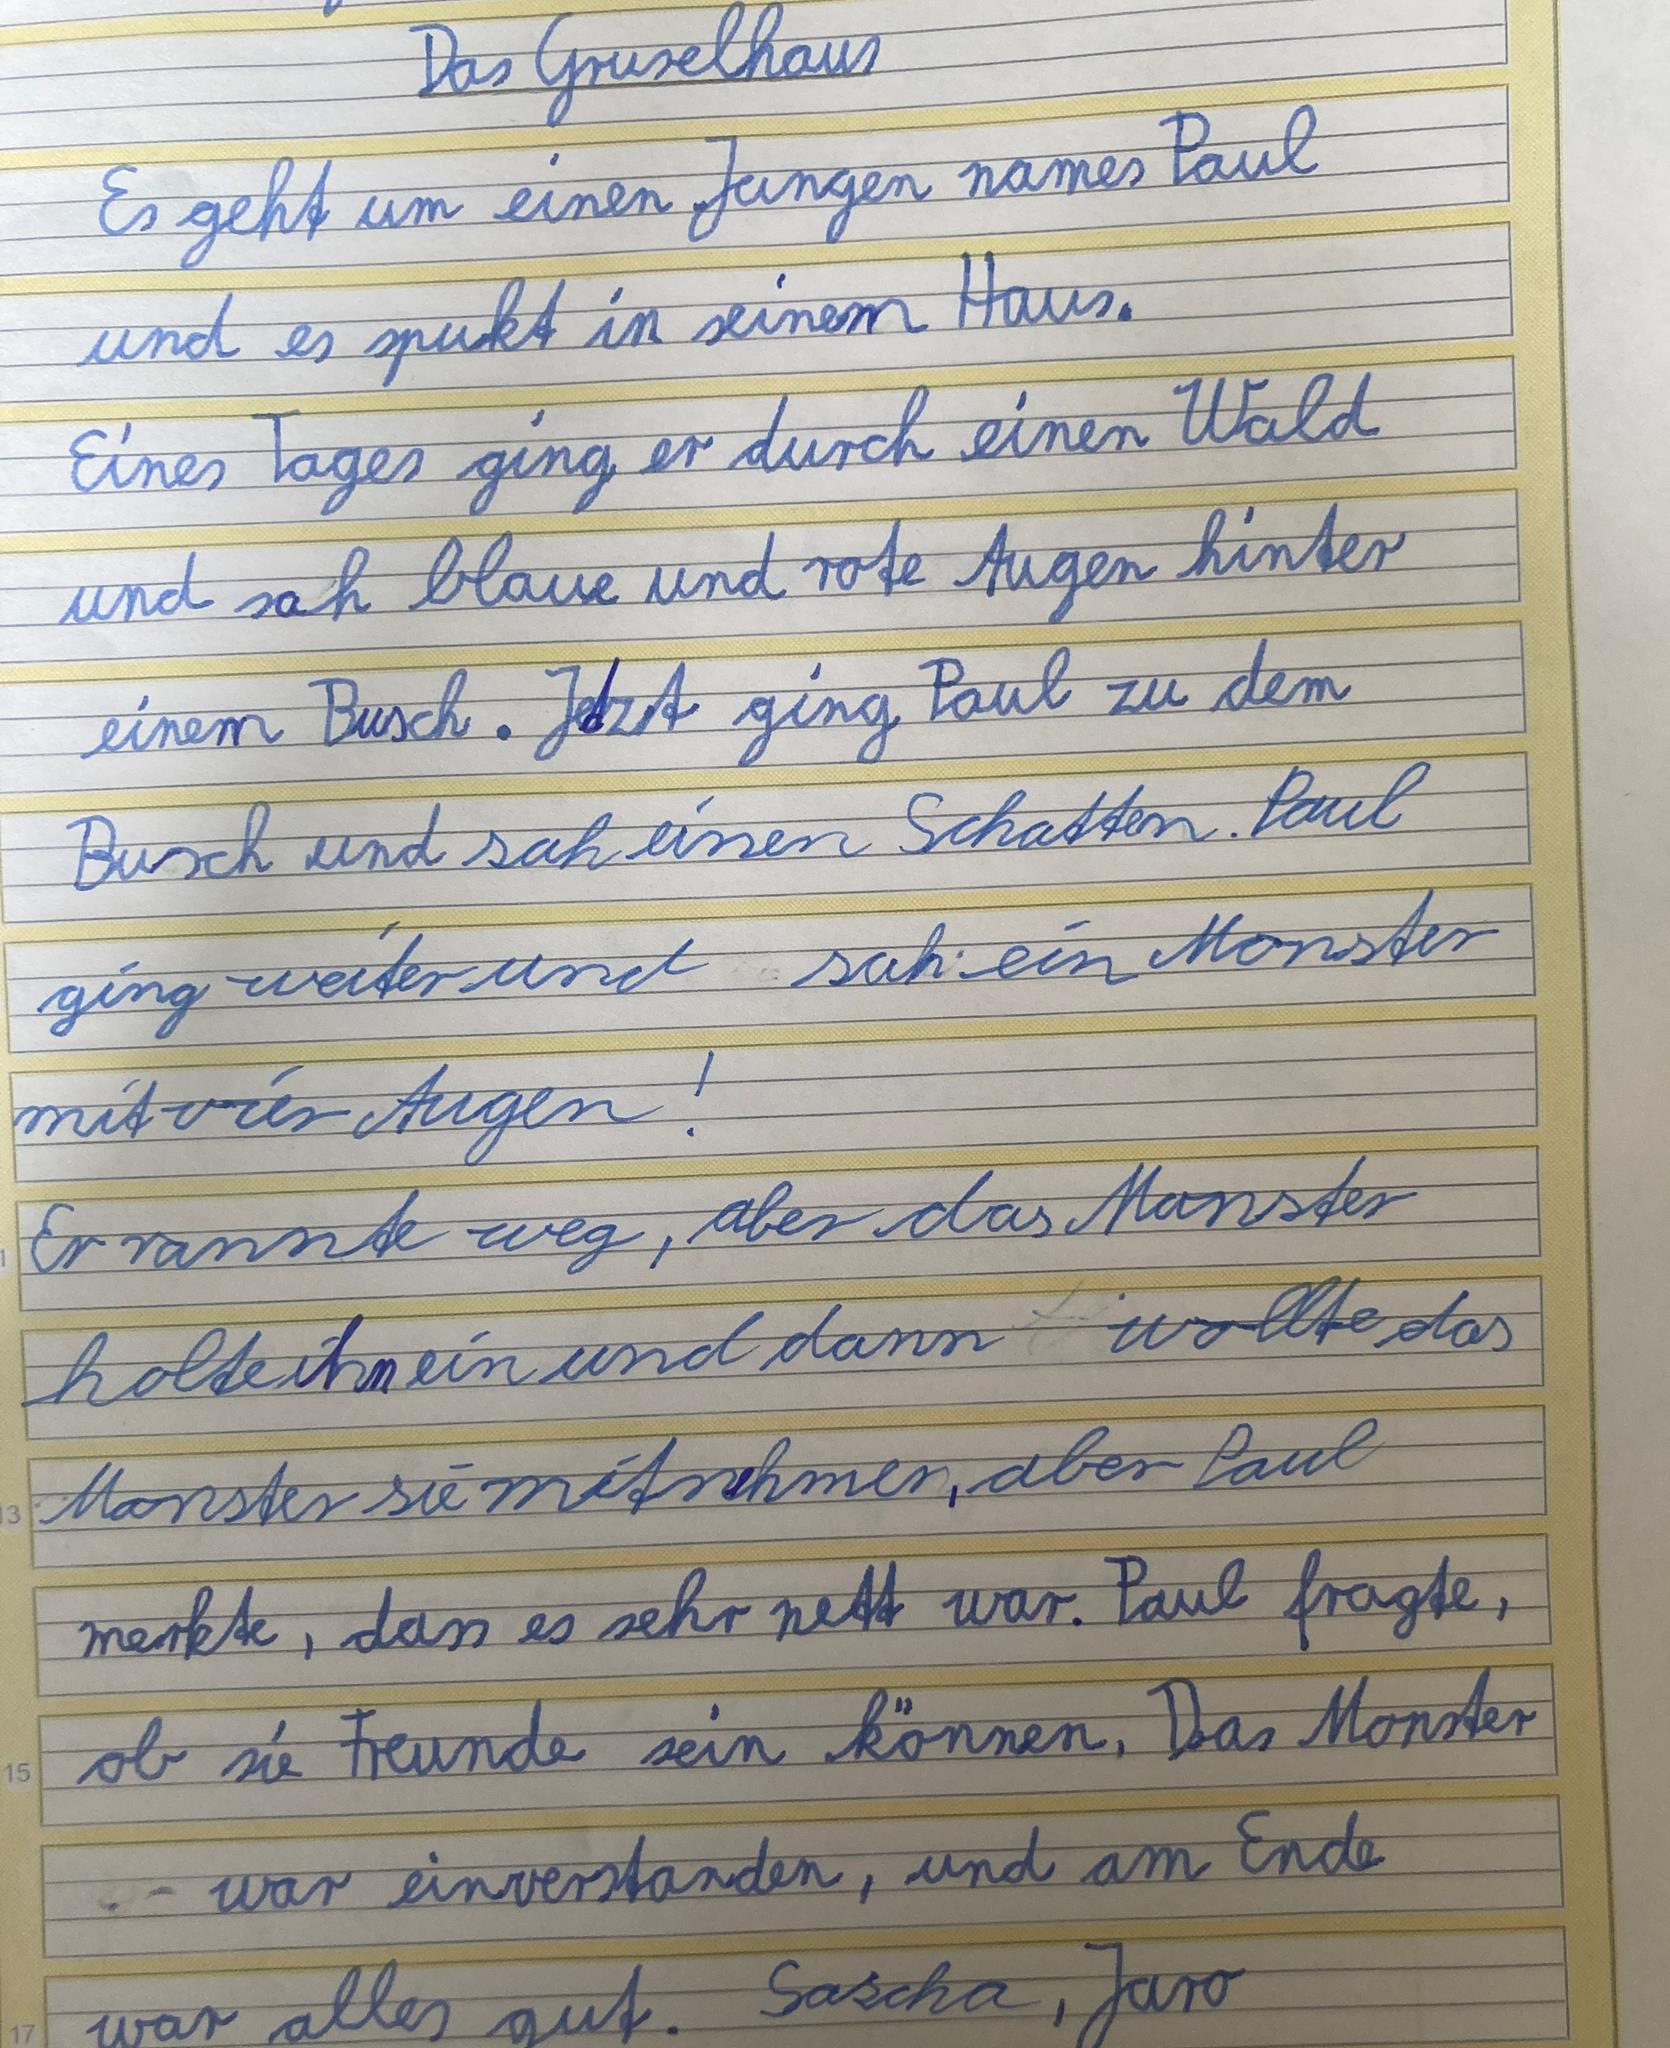 Das Gruselhaus
Es geht um einen Jungen names Paul
und es spukt in seinem Haus.
Eines Tages ging er durch einen Wald
und sah blaue und rote Augen hinter
einem Busch. Jetzt ging Paul zu dem
Busch und sah einen Schatten. Paul
ging weiter und sah ein Monster
mit vier Augen!
Er rannte weg, aber das Monster
holte ihn ein und dann wollte das
Monster sie mitnehmen, aber Paul
13
merkte, dass es sehr nett war. Paul fragte,
ob sie Freunde sein können. Das Monster
15
war einverstanden, und am Ende
war alles gut. Sascha, Jaro
17